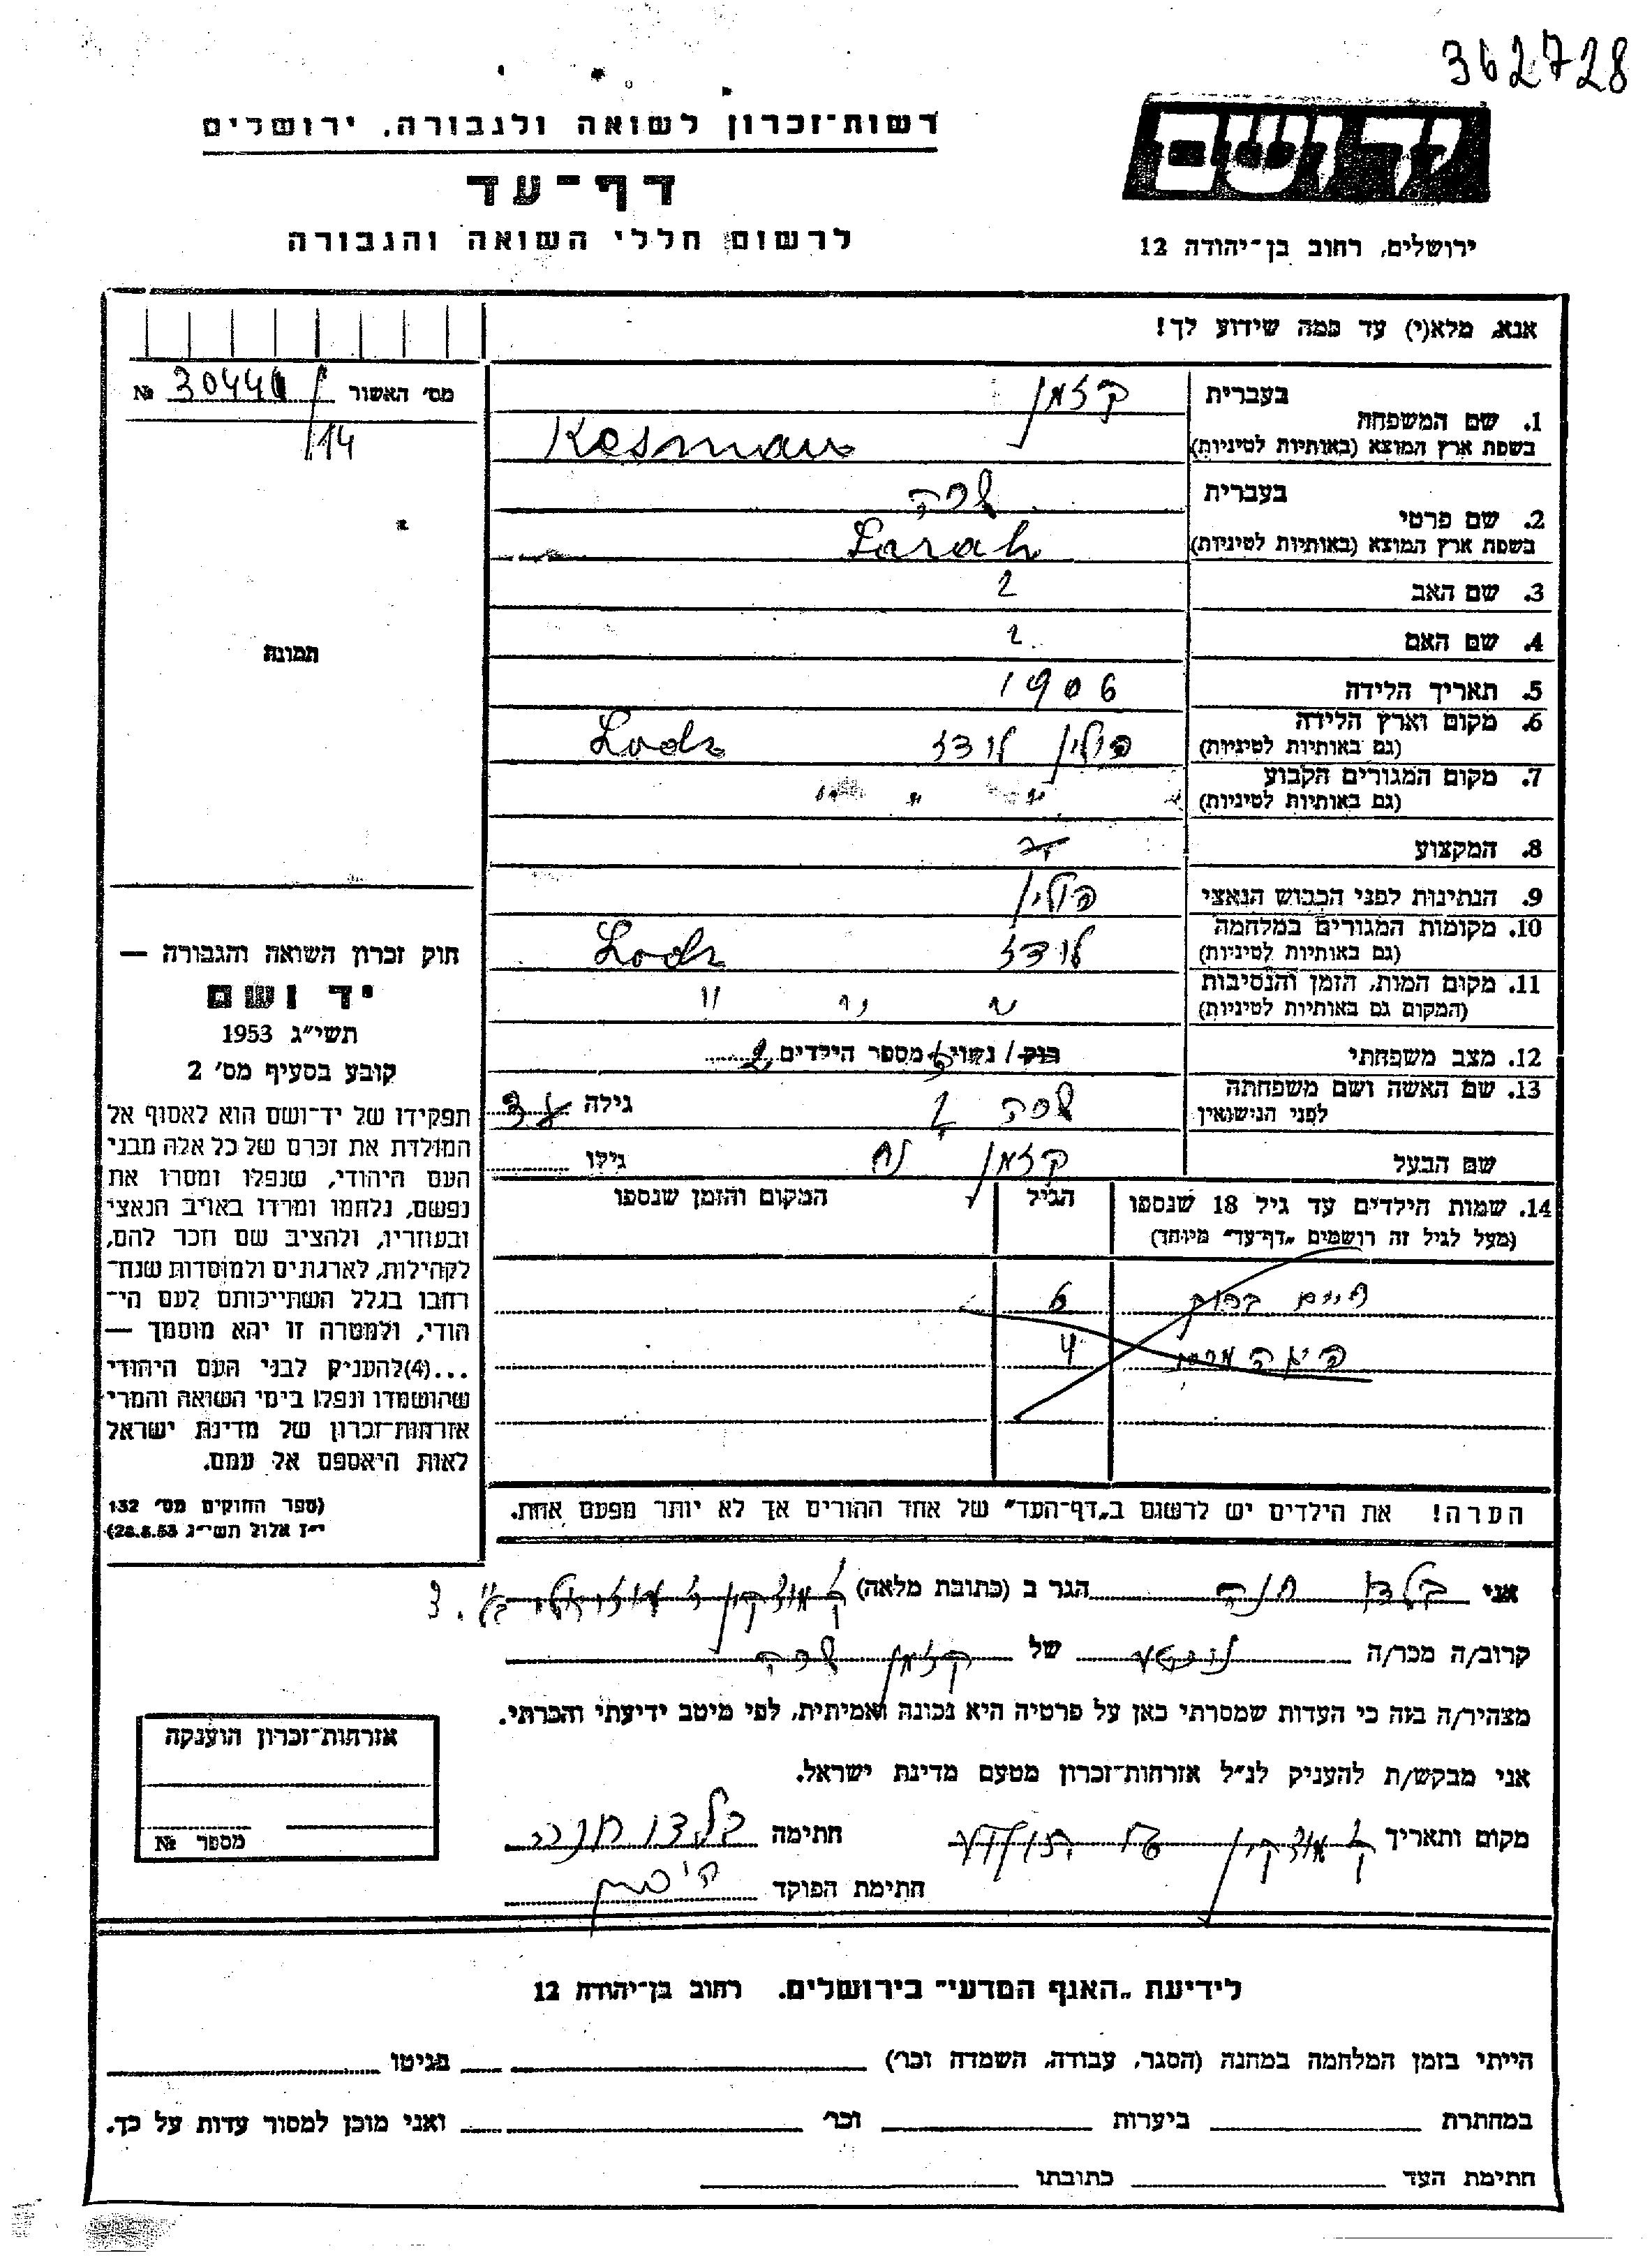 362728
יד ושם
רשות־זכרון לשואה ולגבורה, ירושלים
דף־עד
לרשום חללי השואה והגבורה
ירושלים, רחוב בן־יהודה 12
אנא, מלא(י) עד כמה שידוע לך!
מס׳ האשור № 30441/14
1. שם המשפחה
בעברית קזמן
בשפת ארץ המוצא (באותיות לטיניות) Kesman
2. שם פרטי
בעברית שרה
בשפת ארץ המוצא (באותיות לטיניות) Sarah
3. שם האב ?
4. שם האם ?
5. תאריך הלידה 1906
6. מקום וארץ הלידה פולין לודז Lodz
(גם באותיות לטיניות)
7. מקום המגורים הקבוע " " "
(גם באותיות לטיניות)
8. המקצוע
9. הנתינות לפני הכבוש הנאצי פולין
10. מקומות המגורים במלחמה לודז Lodz
(גם באותיות לטיניות)
11. מקום המות, הזמן והנסיבות " " "
(המקום גם באותיות לטיניות)
12. מצב משפחתי רווק / נשוי ה מספר הילדים 2
13. שם האשה ושם משפחתה שרה ? גילה
לפני הנישואין
שם הבעל קזמן נח גילו
14. שמות הילדים עד גיל 18 שנספו הגיל המקום והזמן שנספו
(מעל לגיל זה רושמים „דף־עד" מיוחד)
חיים ברוך 6
4
הערה! את הילדים יש לרשום ב„דף־העד" של אחד ההורים אך לא יותר מפעם אחת.
תמונה
חוק זכרון השואה והגבורה —
יד ושם
תשי״ג 1953
קובע בסעיף מס׳ 2
תפקידו של יד־ושם הוא לאסוף אל
המולדת את זכרם של כל אלה מבני
העם היהודי, שנפלו ומסרו את
נפשם, נלחמו ומרדו באויב הנאצי
ובעוזריו, ולהציב שם וזכר להם,
לקהילות, לארגונים ולמוסדות שנח־
רחבו בגלל השתייכותם לעם הי־
הודי, ולמטרה זו יהא מוסמך —
...(4)להעניק לבני העם היהודי
שהושמדו ונפלו בימי השואה והמרי
אזרחות־זכרון של מדינת ישראל
לאות היאספם אל עמם.
(ספר החוקים מס׳ 132
י״ז אלול תשי״ג 28.8.53)
אני בלדו חנה הגר ב (כתובת מלאה) ק מוצקין
קרוב/ה מכר/ה של קזמן שרה
מצהיר/ה בזה כי העדות שמסרתי כאן על פרטיה היא נכונה ואמיתית, לפי מיטב ידיעתי והכרתי.
אני מבקש/ת להעניק לנ״ל אזרחות־זכרון מטעם מדינת ישראל.
מקום ותאריך ק מוצקין חתימה בלדו חנה
חתימת הפוקד
אזרחות־זכרון הוענקה
מספר №
לידיעת „האגף המדעי" בירושלים. רחוב בן־יהודה 12
הייתי בזמן המלחמה במחנה (הסגר, עבודה, השמדה וכר׳) בגיטו
במחתרת ביערות וכר׳ ואני מוכן למסור עדות על כך.
חתימת העד כתובתו